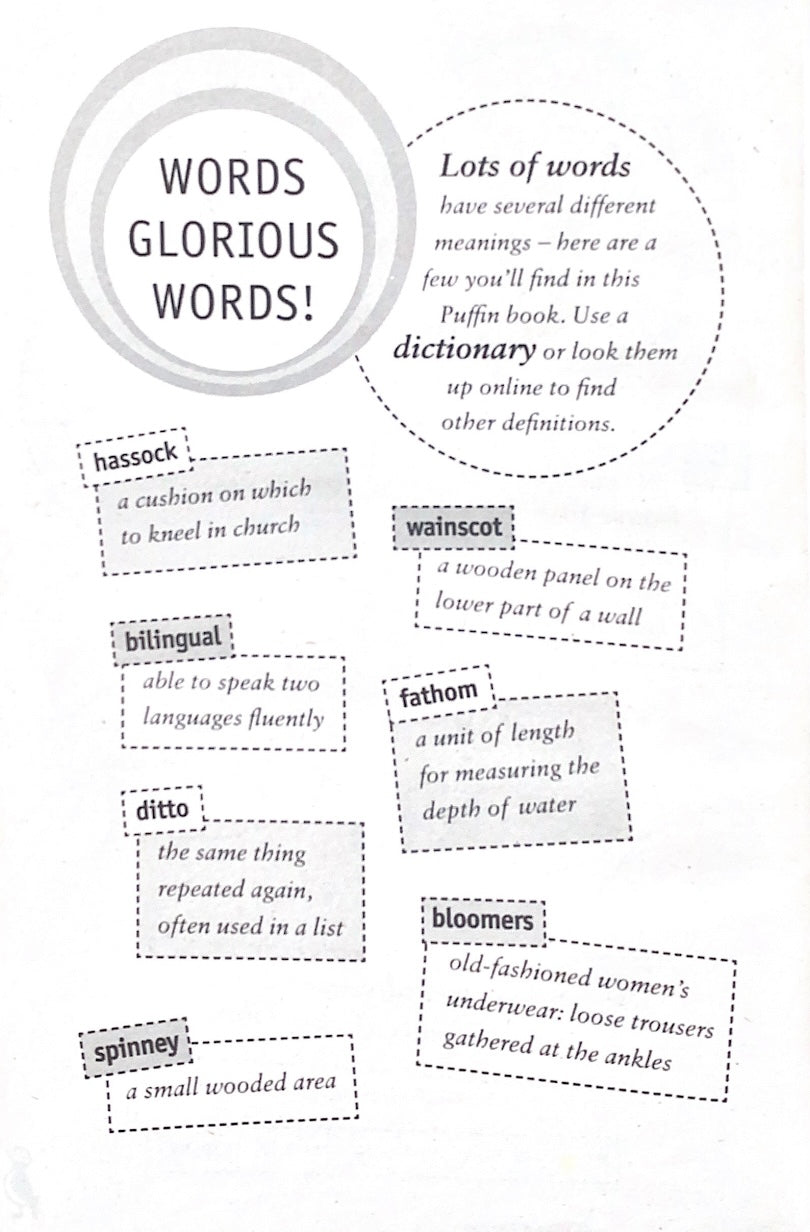 WORDS
GLORIOUS
WORDS!
Lots of words
have several different
meanings – here are a
few you'll find in this
Puffin book. Use a
dictionary or look them
up online to find
other definitions.
hassock
a cushion on which
to kneel in church
wainscot
a wooden panel on the
lower part of a wall
bilingual
able to speak two
languages fluently
fathom
a unit of length
for measuring the
depth of water
ditto
the same thing
repeated again,
often used in a list
bloomers
old-fashioned women's
underwear: loose trousers
gathered at the ankles
spinney
a small wooded area